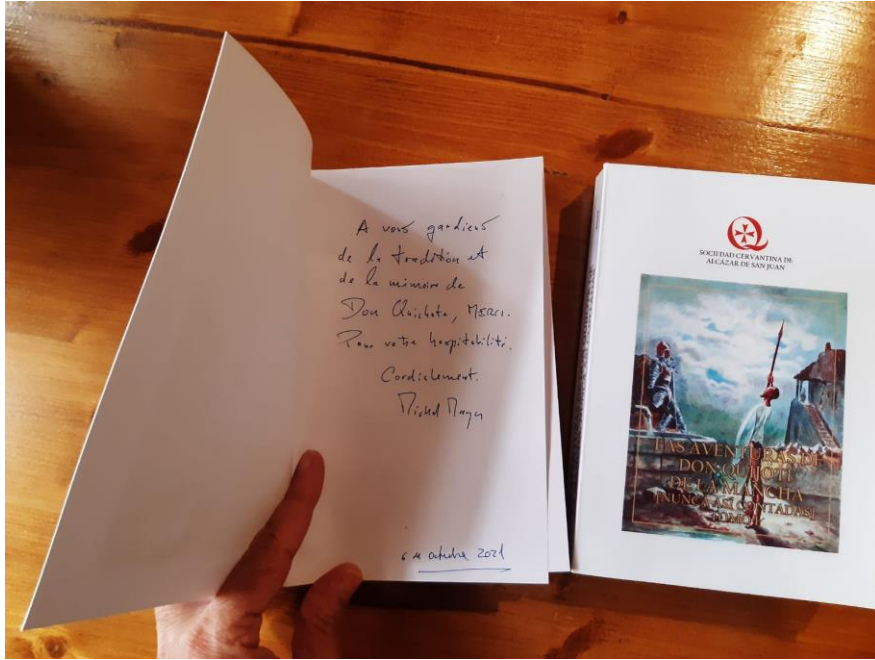 A vous gardiens
de la tradition et
de la mémoire de
Don Quichote, MERCI.
Pour votre hospitalité.
Cordialement.
Michel
6 de octubre 2021
SOCIEDAD CERVANTINA DE
ALCÁZAR DE SAN JUAN
LAS AVENTURAS DE
DON QUIJOTE
DE LA MANCHA
(NUNCA ASÍ CONTADAS)
TOMO